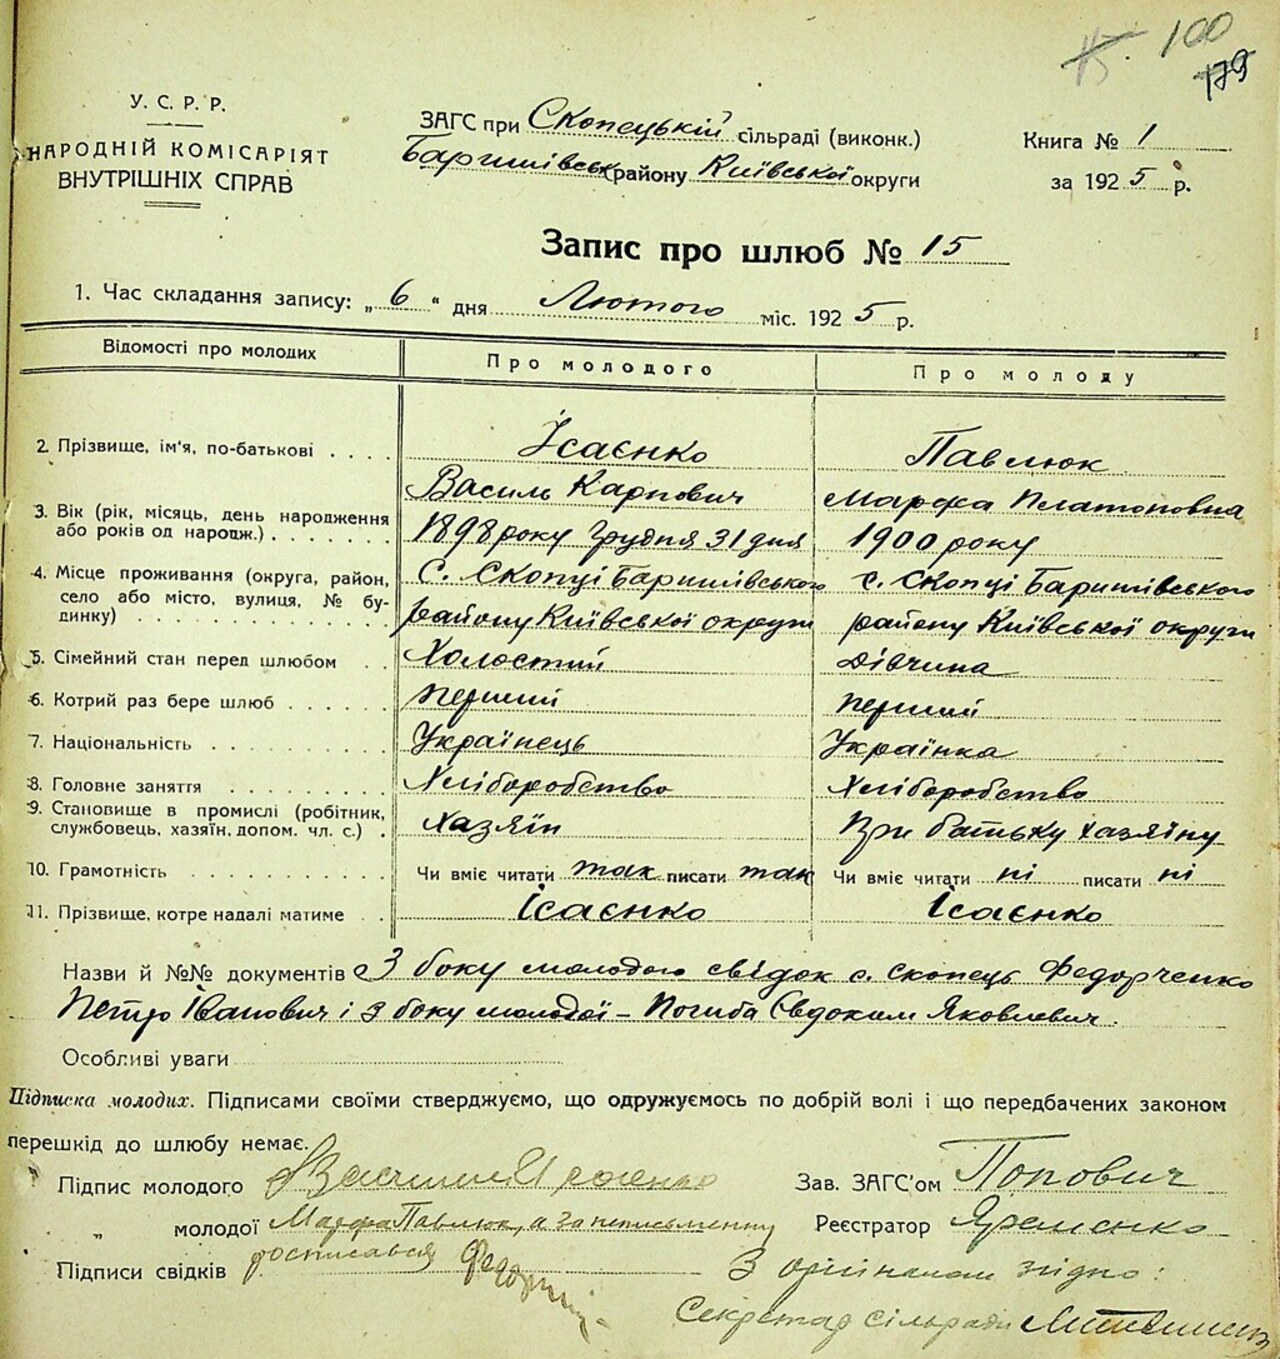 100
179
У. С. Р. Р.
НАРОДНІЙ КОМІСАРІЯТ
ВНУТРІШНІХ СПРАВ
ЗАГС при Скопецькій сільраді (виконк.)
Баришівськ району Київської округи
Книга № 1
за 1925 р.
Запис про шлюб № 15
1. Час складання запису: „6“ дня Лютого міс. 1925 р.
Відомості про молодих Про молодого Про молоду
2. Прізвище, ім'я, по-батькові Ісаєнко Павлюк
Василь Карпович Марфа Платоновна
3. Вік (рік, місяць, день народження
або років од народж.) 1898 року Грудня 31 дня 1900 року
4. Місце проживання (округа, район, с. Скопці Баришівського с. Скопці Баришівського
село або місто, вулиця, № бу-
динку) району Київської округи району Київської округи
5. Сімейний стан перед шлюбом Холостий дівчина
6. Котрий раз бере шлюб перший перший
7. Національність Українець Українка
8. Головне заняття Хліборобство Хліборобство
9. Становище в промислі (робітник,
службовець, хазяїн, допом. чл. с.) Хазяїн При батьку хазяїну
10. Грамотність Чи вміє читати так писати так Чи вміє читати ні писати ні
11. Прізвище, котре надалі матиме Ісаєнко Ісаєнко
Назви й №№ документів З боку молодого свідок с. Скопець Федорченко
Петро Іванович і з боку молодої – Погиба Євдоким Яковлевич.
Особливі уваги
Підписка молодих. Підписами своїми стверджуємо, що одружуємось по добрій волі і що передбачених законом
перешкід до шлюбу немає.
Підпис молодого Зав. ЗАГС'ом Попович
„ молодої Марфа Павлюк, а за неписьменну Реєстратор Яременко
росписався
Підписи свідків З оригіналом згідно:
Секретар сільради